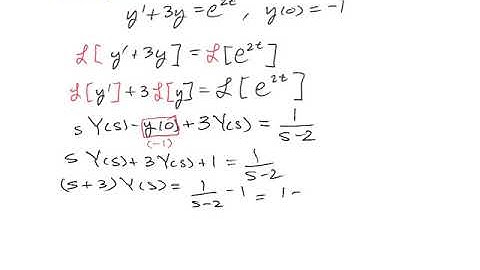 y' + 3y = e^{2t}, y(0) = -1
ℒ[ y' + 3y ] = ℒ[ e^{2t} ]
ℒ[ y' ] + 3 ℒ[ y ] = ℒ[ e^{2t} ]
s Y(s) - y(0) + 3 Y(s) = 1/(s-2)
(-1)
s Y(s) + 3 Y(s) + 1 = 1/(s-2)
(s + 3) Y(s) = 1/(s-2) - 1 = 1 -